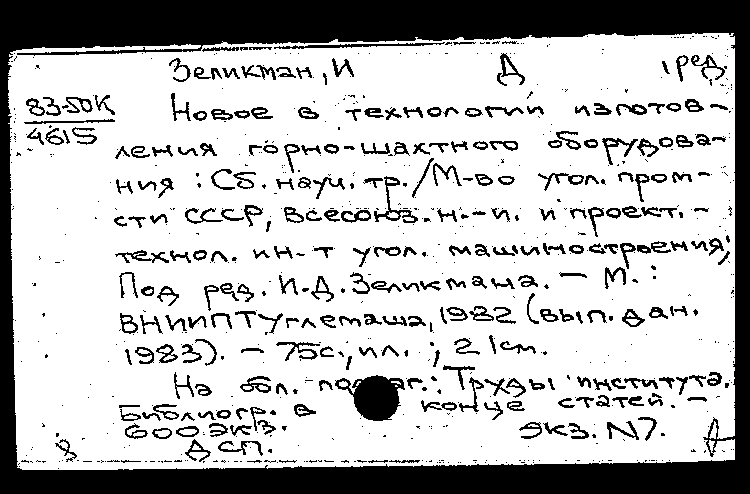 Зеликман, И Д , ред.
83-50К
4615
Новое в технологии изготов-
ления горно-шахтного оборудова-
ния : Сб. науч. тр. / М-во угол. пром-
сти СССР, Всесоюз. н.-и. и проект. -
технол. ин-т угол. машиностроения;
Под ред. И.Д. Зеликмана. — М. :
ВНИИПТУглемаша, 1982 (вып. дан.
1983). — 75с., ил. ; 21см.
На обл. подзаг.: Труды института.
Библиогр. в конце статей. —
600 экз.
экз. N7.
8 ДСП.